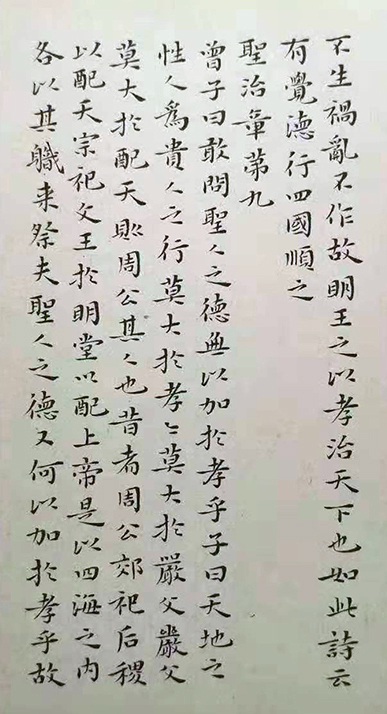 不生禍亂不作故明王之以孝治天下也如此詩云
有覺德行四國順之
聖治章第九
曾子曰敢問聖人之德無以加於孝乎子曰天地之
性人爲貴人之行莫大於孝〻莫大於嚴父嚴父
莫大於配天則周公其人也昔者周公郊祀后稷
以配天宗祀文王於明堂以配上帝是以四海之内
各以其職来祭夫聖人之德又何以加於孝乎故